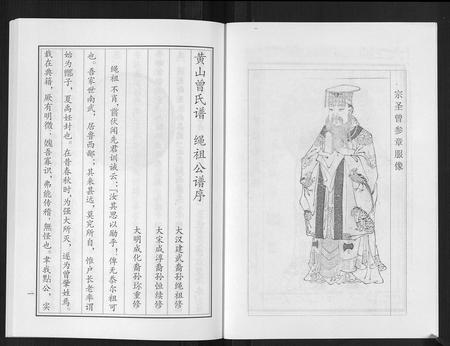 宗圣曾参章服像
黄山曾氏谱 绳祖公谱序
大汉建武裔孙绳祖修
大宋咸淳裔孙恒续修
大明成化裔孙珎重修
绳祖不肖，尝伏闻先君训诫云：「汝其思以励乎！俾无忝尔祖可
也。吾家世南武，居鲁西鄙；其来甚远，莫究所自，惟户长老率谓
始为鄫子，夏禹姓封也。在昔春秋时，为强大所灭，遂为曾肇姓焉。
载在典籍，厥有明徵，媿吾寡识，弗能传稽，無怪也。聿我點公，实
一